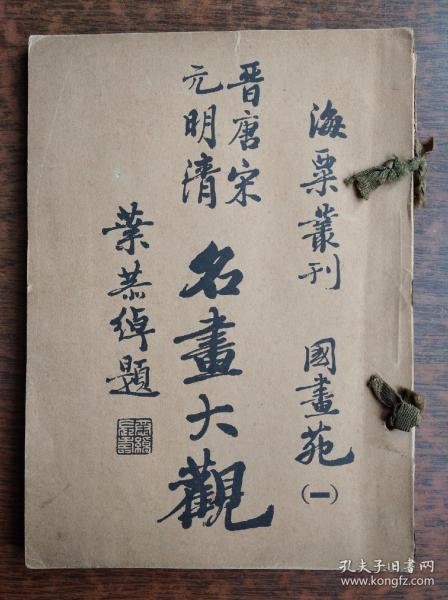 海粟叢刊 國畫苑(一)
晋唐宋
元明清
名畫大觀
葉恭綽題
孔夫子旧书网
www.kongfz.com